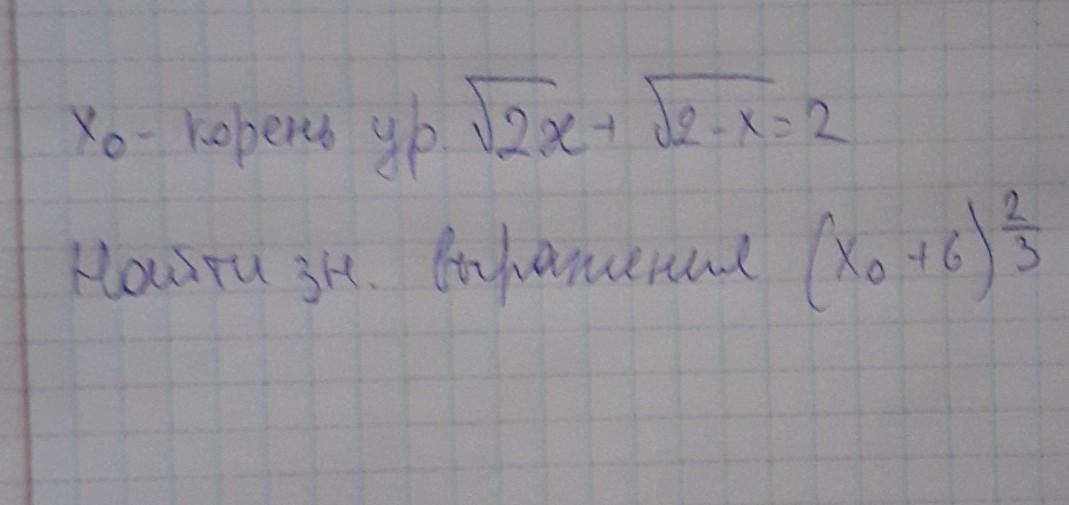 x₀ - корень ур. √2x + √2-x = 2
Найти зн. выражения (x₀ + 6)^2/3